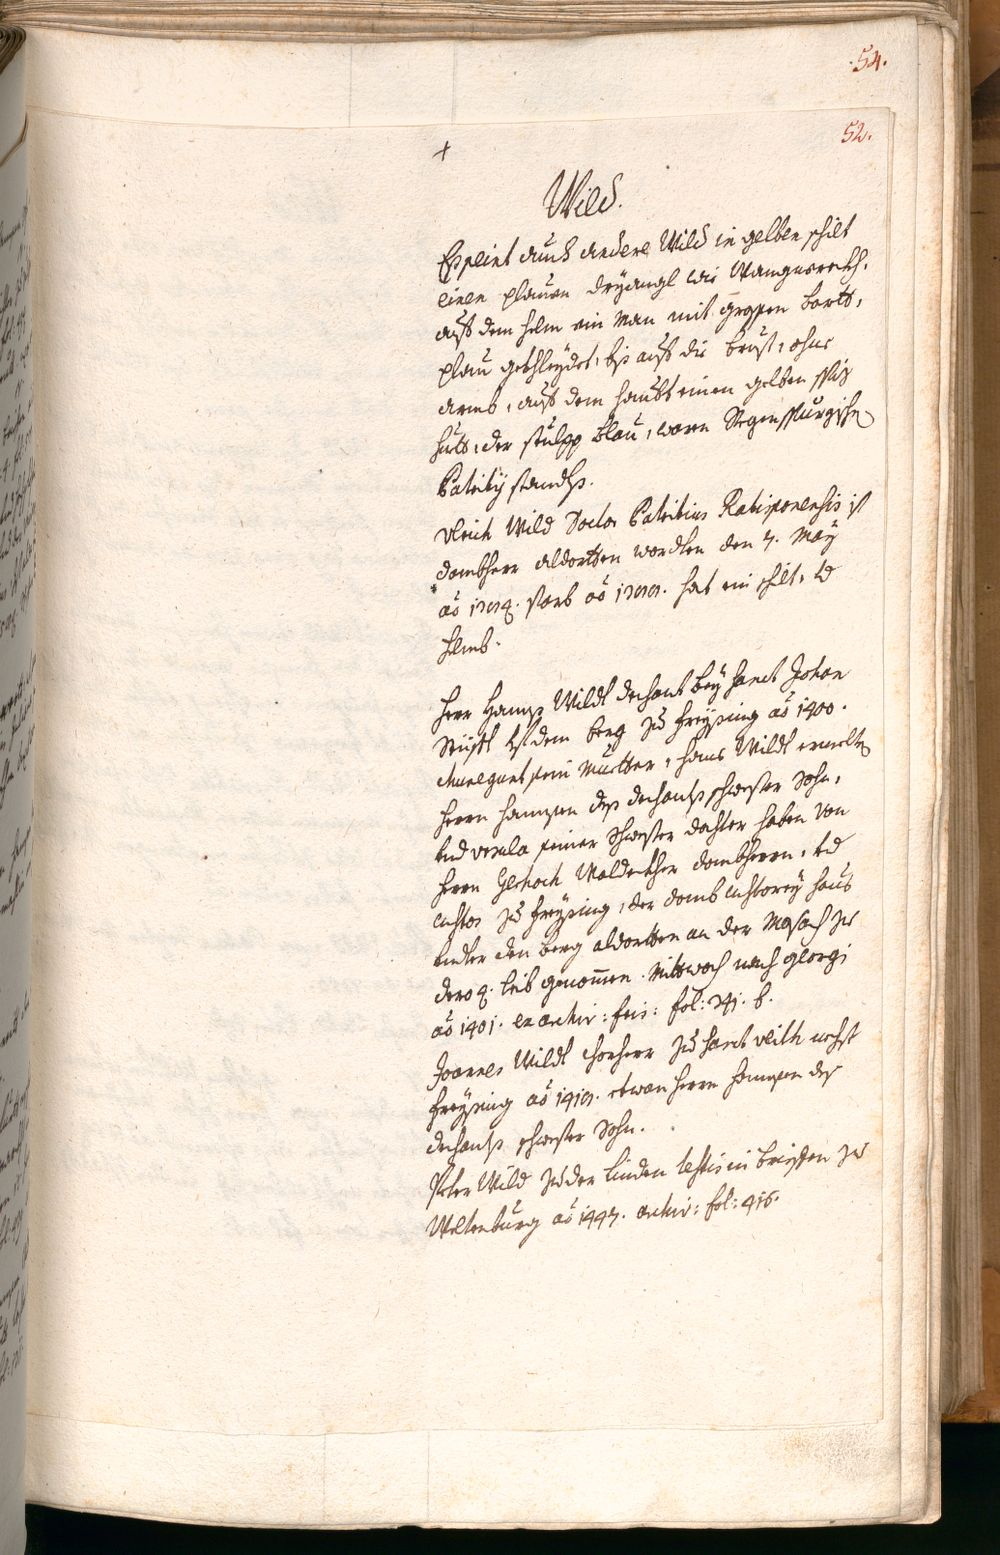 .54.
52.
+
Wild.
Es seint auch andere Wild in gelben schilt
einen plauen dryangl wie Wangnereckh.
auf dem helm ein Man mit grossen bartt,
plau gekhleydet, biß auf die brust, ohne
armb, auf dem haubt einen gelben spiz
huet, der stulpp blau, waren Regenspurgische
Patritij standts.
Ulrich Wild Doctor Patritius Ratisponensis ist
dombherr aldortten wordten den 7. May
starb hat ein schilt, vnd
helmb.
Herr Hannß Wildt dechant bey sanct Johan
Stüfft auf dem berg zu Freysing aō 1400.
Margaret sein Muetter, Hans Wildt
herrn Hannsen deß dechants schwester Sohn,
vnd Ursula seiner Schwester dochter haben von
herrn Gerhoch Waldeckher dombherrn, vnd
Custos zu Freysing, der domb Custorey haus
vnder den berg aldortten an der Mosach zu
dero 4. leib genommen. Mittwoch nach Georgi
aō 1401. ex archiv: fris: fol: 241. b.
Joannes Wildt Chorherr zu sanct Veith nechst
Freysing aō etwan herrn Hannsen deß
dechants schwester Sohn.
Peter Wild zu der Linden testis in brieffen zu
Weltenburg aō 1447. archiv: fol: 416.